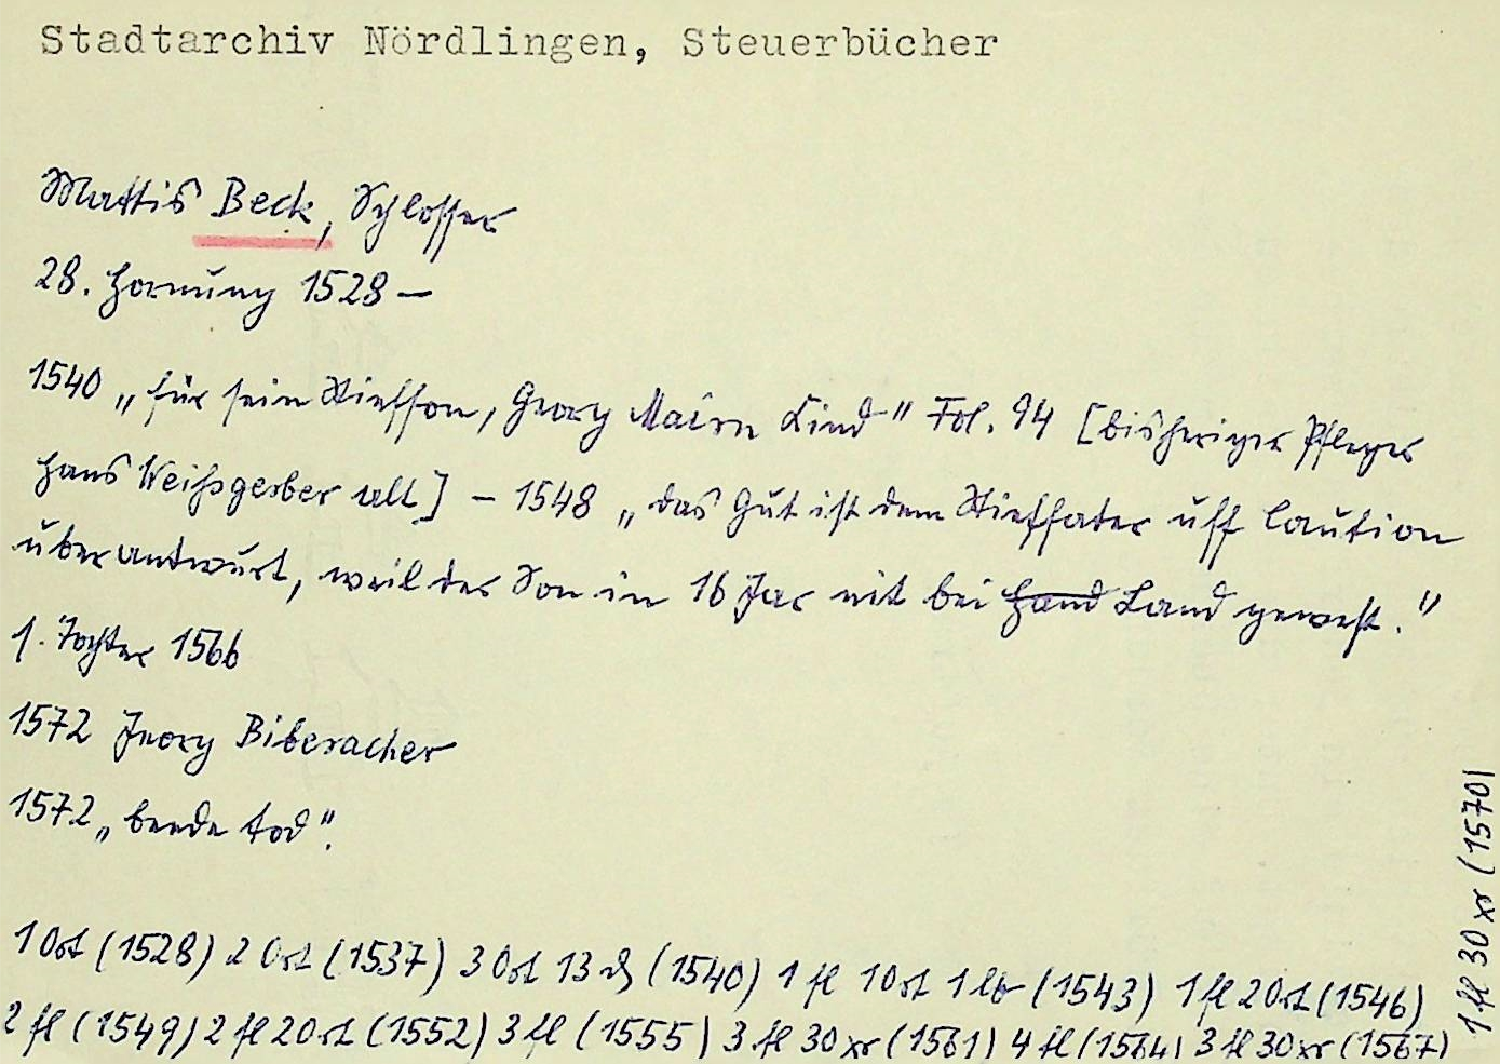 Stadtarchiv Nördlingen, Steuerbücher
Mattis Beck, Schlosser
28. Hornung 1528 –
1540 „für sein Stiefson, Georg Mairn Kind" Fol. 94 [bisheriger Pfleger
Hans Weißgerber alt] – 1548 „das Gut ist dem Stieffater uff Caution
überantwurt, weil der Son in 16 Jar nit bei Hand Land gewest."
1. Tochter 1566
1572 Jeorg Biberacher
1572 „beede tod".
1 Ort (1528) 2 Ort (1537) 3 Ort 13 ₰ (1540) 1 fl 1 Ort 1 lb (1543) 1 fl 2 Ort (1546)
2 fl (1549) 2 fl 2 Ort (1552) 3 fl (1555) 3 fl 30 xr (1561) 4 fl (1564) 3 fl 30 xr (1567)
1 fl 30 xr (1570)